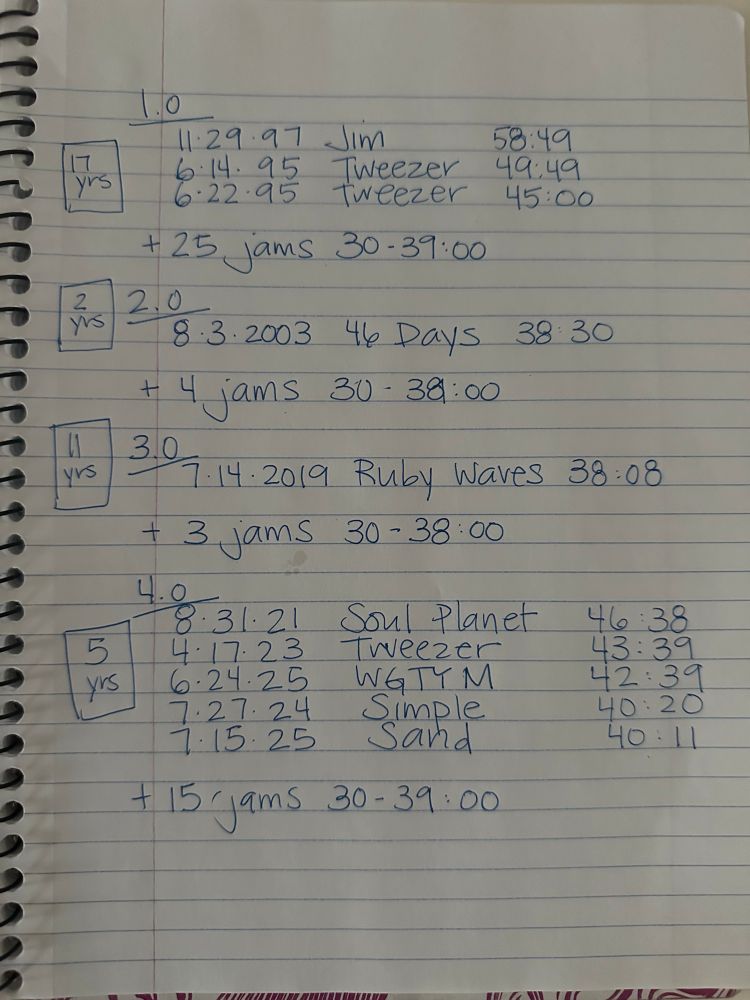 1.0
17 yrs
11·29·97 Jim 58:49
6·14·95 Tweezer 49:49
6·22·95 Tweezer 45:00
+ 25 jams 30-39:00
2 yrs
2.0
8·3·2003 46 Days 38:30
+ 4 jams 30-38:00
11 yrs
3.0
7·14·2019 Ruby Waves 38:08
+ 3 jams 30-38:00
4.0
5 yrs
8·31·21 Soul Planet 46:38
4·17·23 Tweezer 43:39
6·24·25 WGTYM 42:39
7·27·24 Simple 40:20
7·15·25 Sand 40:11
+ 15 jams 30-39:00